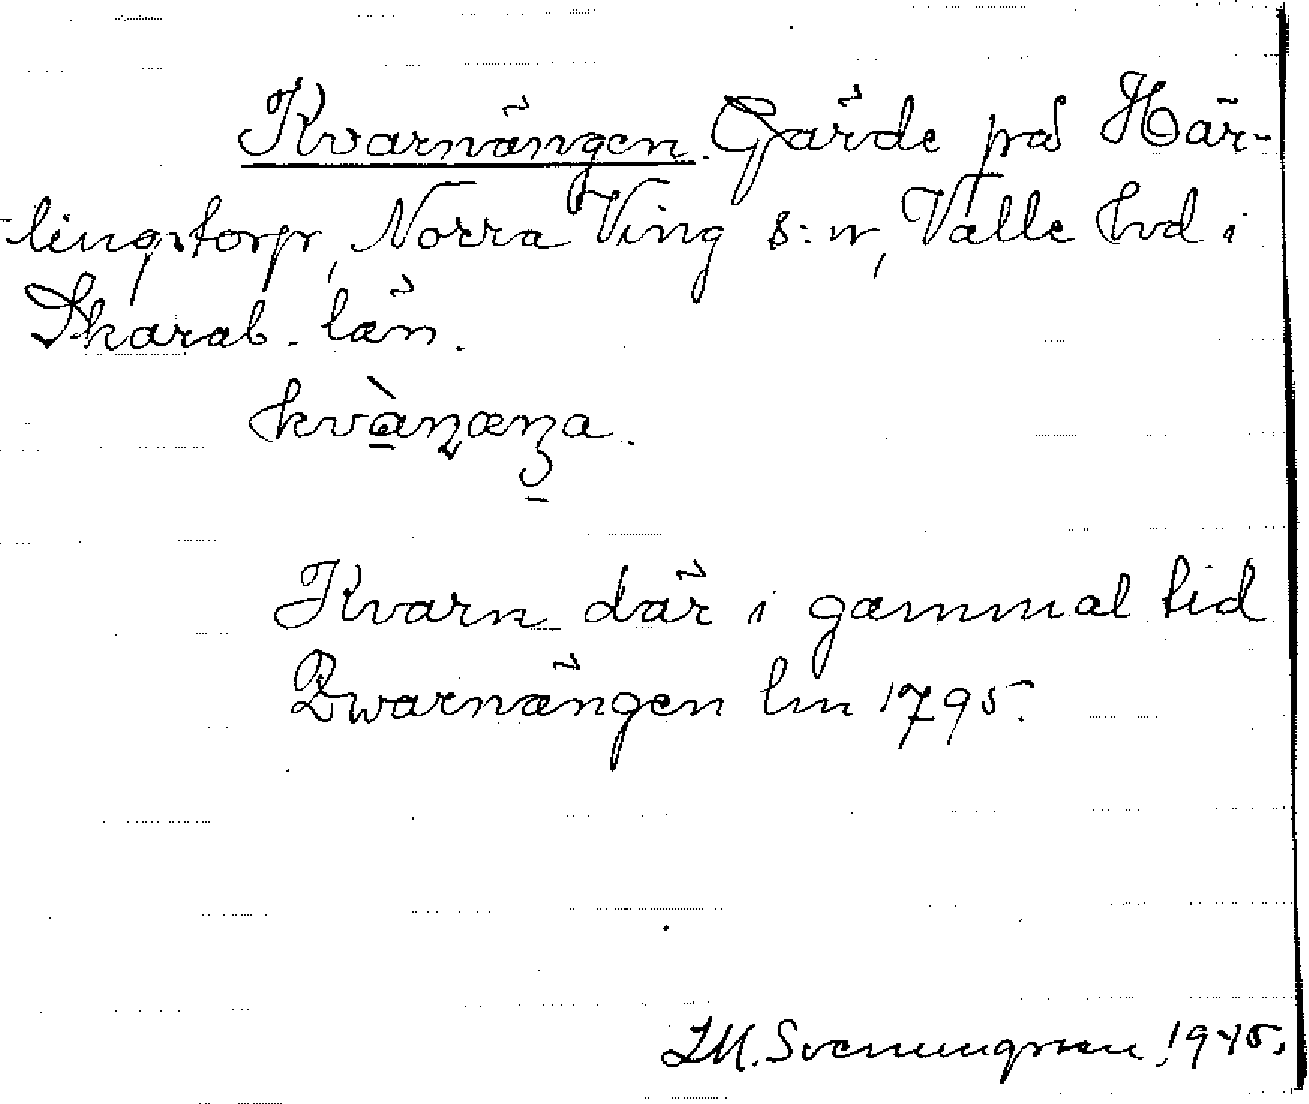 Kvarnängen. Gärde på Här-
lingstorp, Norra Ving s:n, Valle hd i
Skarab. län.
Kvarn där i gammal tid
Qwarnängen lm 1795.
J.M. Svenungsson 1945.